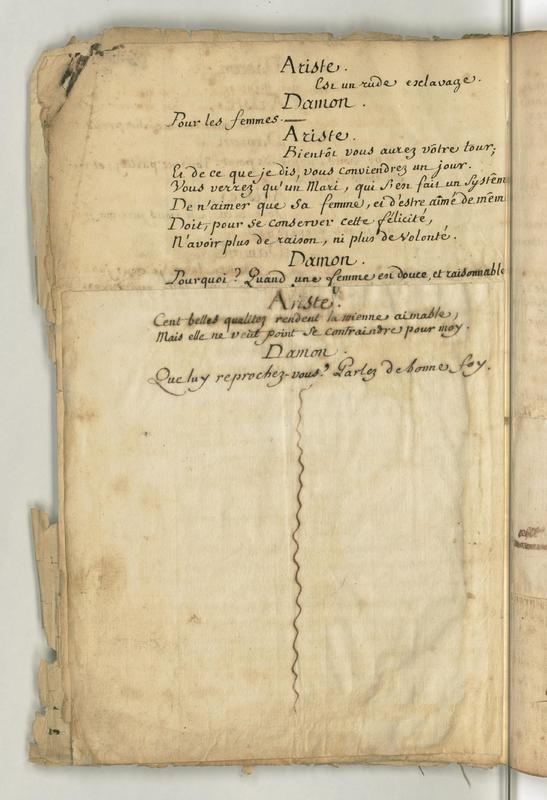 Ariste.
Est un rude esclavage.
Damon.
Pour les femmes.—
Ariste.
Bientôt vous aurez vôtre tour;
Et de ce que je dis, vous conviendrez un jour.
Vous verrez qu'un Mari, qui s'en fait un Systêm
De n'aimer que Sa femme, et d'estre aimé de mêm
Doit, pour se conserver cette félicité,
N'avoir plus de raison, ni plus de volonté.
Damon.
Pourquoi? Quand une femme est douce, et raisonnable
Ariste.
Cent belles qualitez rendent la mienne aimable,
Mais elle ne veut point se contraindre pour moy.
Damon.
Que luy reprochez-vous? Parlez de bonne foy.